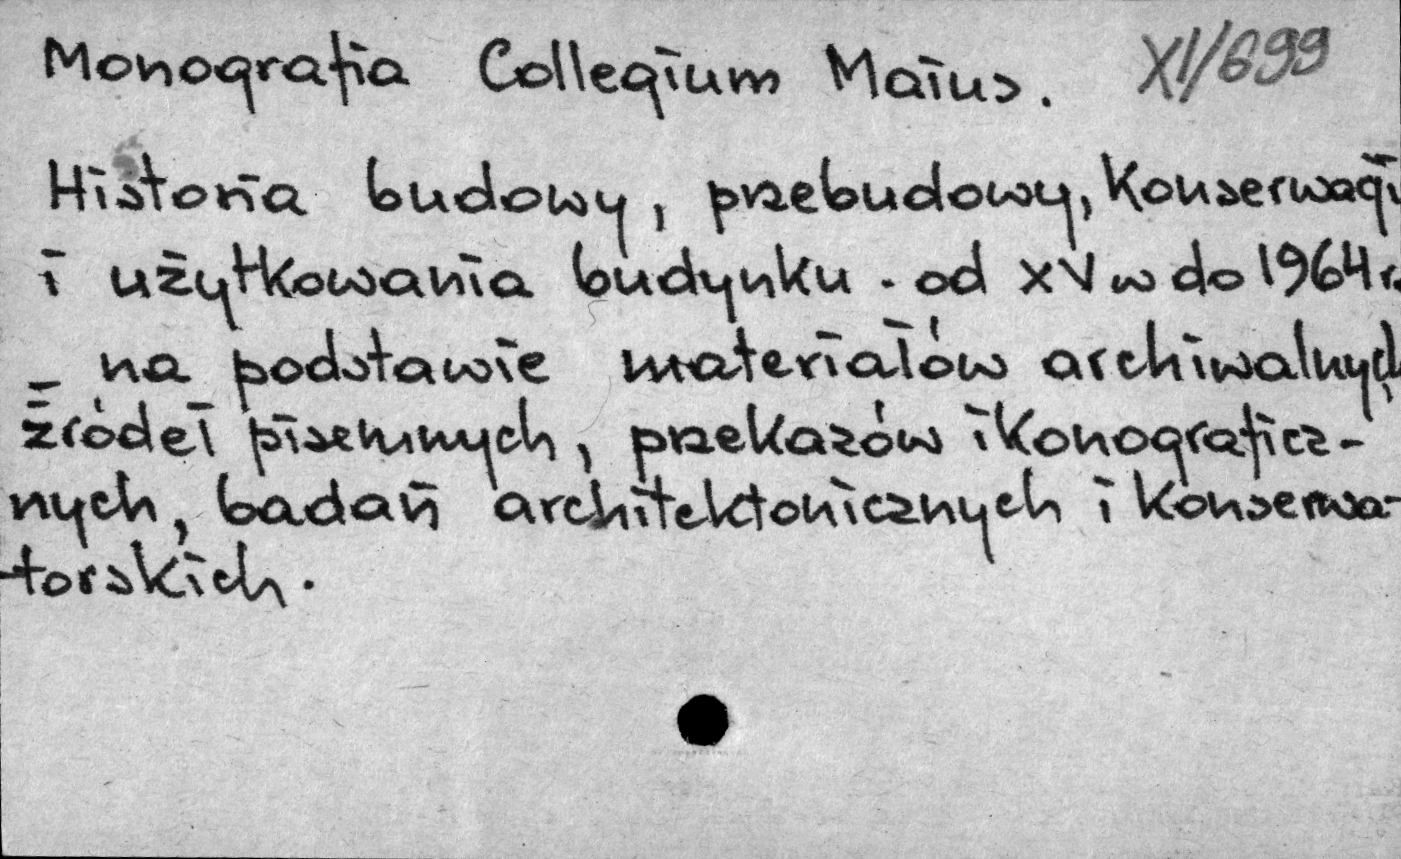 Monografia Collegium Maius. XI/699
Historia budowy, przebudowy, konserwacji
i użytkowania budynku. od XV w do 1964 r.
_ na podstawie materiałów archiwalnych
źródeł pisemnych, przekazów ikonograficz-
nych, badań architektonicznych i konserwa-
torskich.